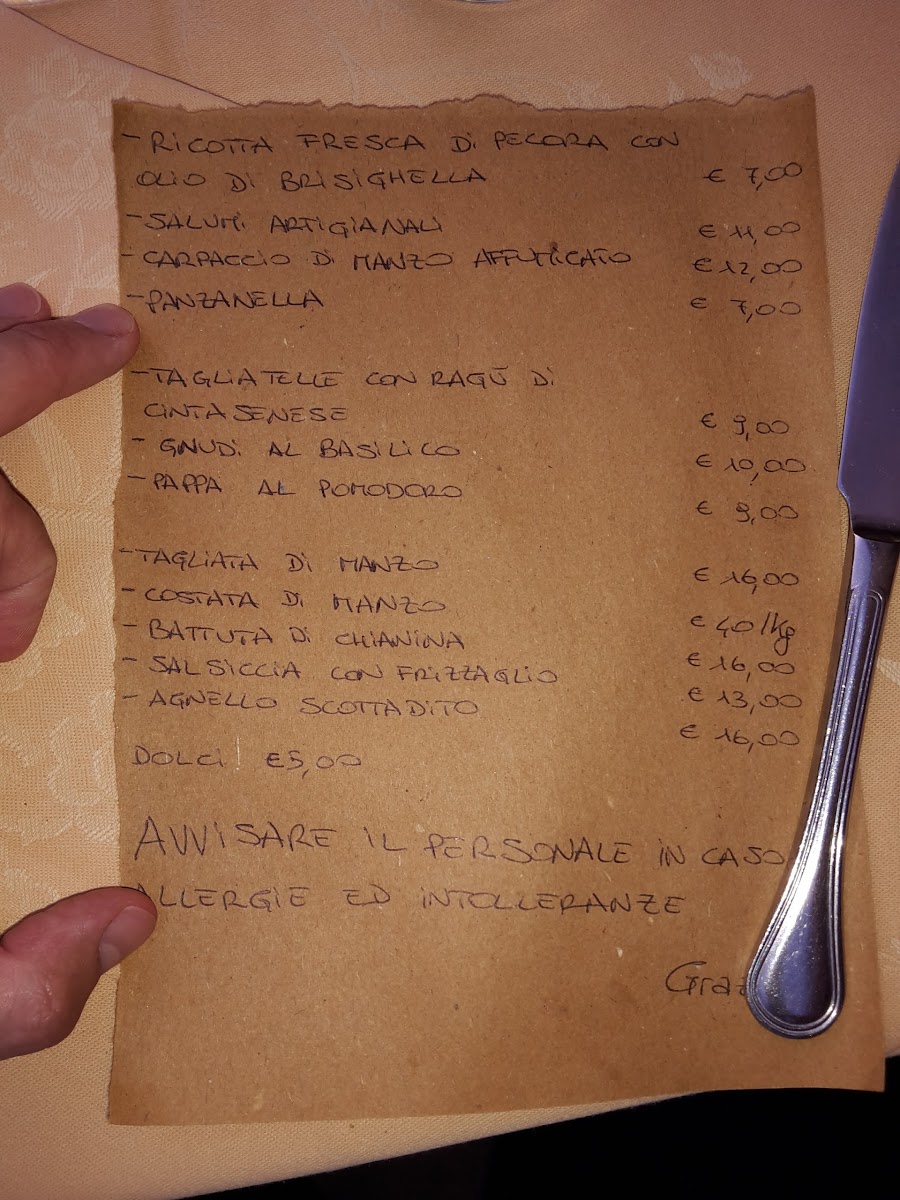 - RICOTTA FRESCA Di PECORA CON
OLIO DI BRISIGHELLA € 7,00
- SALUMi ARTIGIANALi € 11,00
- CARPACCIO Di MANZO AFFUMICATO € 12,00
- PANZANELLA € 7,00
- TAGLIATELLE CON RAGÙ Di
CINTA SENESE € 9,00
- GNUDi AL BASILICO € 10,00
- PAPPA AL POMODORO € 9,00
- TAGLIATA Di MANZO € 16,00
- COSTATA Di MANZO € 40/Kg
- BATTUTA Di CHIANINA € 16,00
- SALSICCIA CON FRIZZAGLIO € 13,00
- AGNELLO SCOTTADITO € 16,00
DOLCi €5,00
AVVISARE IL PERSONALE IN CASO
ALLERGIE ED INTOLLERANZE